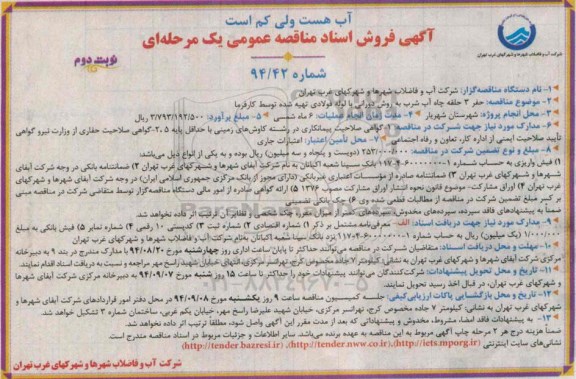 آب هست ولی کم است
آگهی فروش اسناد مناقصه عمومی یک مرحله‌ای
نوبت دوم
شماره ۹۴/۴۲
شرکت آب و فاضلاب شهرها و شهرکهای غرب تهران
۱- نام دستگاه مناقصه‌گزار: شرکت آب و فاضلاب شهرها و شهرکهای غرب تهران
۲- موضوع مناقصه: حفر ۳ حلقه چاه آب شرب به روش دورانی با لوله فولادی تهیه شده توسط کارفرما
۳- محل انجام پروژه: شهرستان شهریار ۴- مدت زمان انجام عملیات: ۶ ماه شمسی ۵- مبلغ برآورد: ۳/۷۹۳/۱۹۲/۵۰۰ ریال
۶- مدارک مورد نیاز جهت شرکت در مناقصه: ۱-گواهی صلاحیت پیمانکاری در رشته کاوش‌های زمینی با حداقل پایه ۵ ۲-گواهی صلاحیت حفاری از وزارت نیرو گواهی
تأیید صلاحیت ایمنی از اداره کار، تعاون و رفاه اجتماعی ۷- محل تأمین اعتبار: اعتبارات جاری
۸- مبلغ و نوع تضمین شرکت در مناقصه: ۲۵۳/۰۰۰/۰۰۰ (دویست و پنجاه و سه میلیون) ریال بوده و به یکی از انواع ذیل می‌باشد:
۱) فیش واریزی به حساب شماره بانک سینا شعبه آکبانان به نام شرکت آبفای شهرها و شهرکهای غرب تهران ۲) ضمانتنامه بانکی در وجه شرکت آبفای
شهرها و شهرکهای غرب تهران ۳) ضمانتنامه صادره از مؤسسات اعتباری غیربانکی (دارای مجوز از بانک مرکزی جمهوری اسلامی ایران) در وجه شرکت آبفای شهرها و شهرکهای
غرب تهران ۴) اوراق مشارکت- موضوع قانون نحوه انتشار اوراق مشارکت مصوب ۱۳۷۶ ۵) ارائه گواهی صادره از امور مالی دستگاه مناقصه‌گزار توسط متقاضی شرکت در مناقصه مبنی
بر کسر مبلغ تضمین شرکت در مناقصه از مطالبات قطعی شده وی ۶) چک بانکی تضمینی
ضمناً به پیشنهادهای فاقد سپرده، سپرده‌های مخدوش، سپرده‌های کمتر از میزان مقرره چک شخصی و نظایر آن ترتیب اثر داده نخواهد شد.
۹- مدارک مورد نیاز جهت دریافت اسناد: الف- معرفی‌نامه مشتمل بر ذکر ۱) شماره اقتصادی ۲) شماره ثبت ۳) کدپستی ۱۰ رقمی ۴) شماره نمابر ۵) فیش بانکی به مبلغ
۱/۰۰۰/۰۰۰ (یک میلیون) ریال به حساب شماره بانک سینا شعبه آکبانان بنام شرکت آب و فاضلاب شهرها و شهرکهای غرب تهران
۱۰- مهلت و محل دریافت اسناد: متقاضیان شرکت در مناقصه می‌توانند حداکثر تا پایان ساعت اداری روز چهارشنبه مورخ ۹۴/۰۸/۲۰ با مدارک مندرج در بند ۹ به دبیرخانه
مرکزی شرکت آبفای شهرها و شهرکهای غرب تهران به نشانی: کیلومتر ۷ جاده مخصوص کرج، تهرانسر مرکزی، انتهای خیابان شهید راسخ مهر مراجعه و نسبت به دریافت اسناد اقدام نمایند.
۱۱- تاریخ و محل تحویل پیشنهادات: شرکت‌کنندگان می‌توانند پیشنهادات خود را حداکثر تا ساعت ۱۵ روز شنبه مورخ ۹۴/۰۹/۰۷ به دبیرخانه مرکزی شرکت آبفای شهرها و
شهرکهای غرب تهران، در قبال اخذ رسید تحویل نمایند.
۱۲- تاریخ و محل بازگشایی پاکات ارزیابی کیفی: جلسه کمیسیون مناقصه ساعت ۹ روز یکشنبه مورخ ۹۴/۰۹/۰۸ در محل دفتر امور قراردادهای شرکت آبفای شهرها و
شهرکهای غرب تهران به نشانی: کیلومتر ۷ جاده مخصوص کرج، تهرانسر مرکزی، خیابان شهید علیرضا راسخ مهر، خیابان یکم غربی، ساختمان شماره ۳ تشکیل خواهد شد.
۱۳- به پیشنهادات فاقد امضا، مشروط، مخدوش و پیشنهاداتی که بعد از مدت مقرر این آگهی واصل شود، مطلقاً ترتیب اثر داده نخواهد شد.
ضمناً هزینه درج هر ۲ مرحله چاپ آگهی مربوط به این مناقصه به عهده برنده می‌باشد. سایر اطلاعات و جزئیات مربوط در اسناد مناقصه مندرج است.
نشانی‌های سایت اینترنتی (http://iets.mporg.ir)، (http://tender.nww.co.ir)، (http://tender.bazresi.ir)
شرکت آب و فاضلاب شهرها و شهرکهای غرب تهران
۰۲۱-۸۸۳۴۹۶۷۰-۵